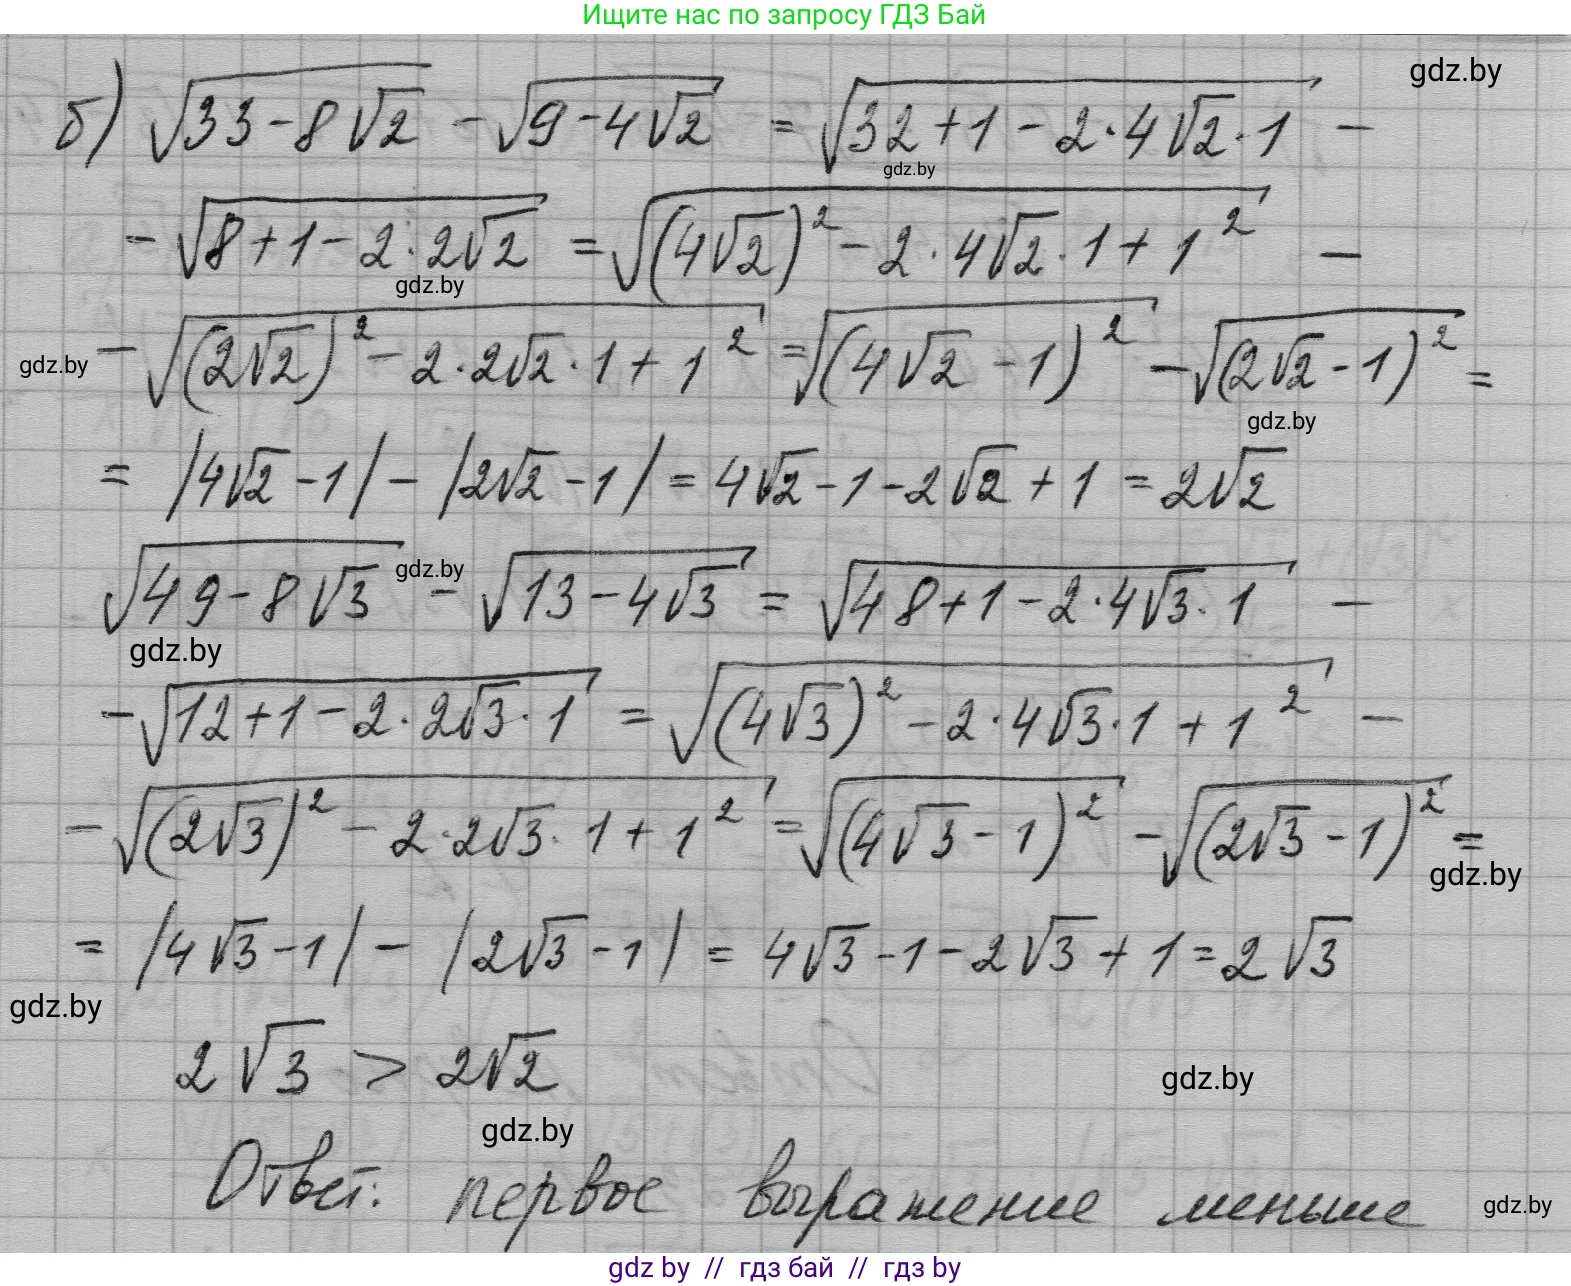 Ищите нас по запросу ГДЗ Бай
gdz.by
б) √(33-8√2) - √(9-4√2) = √(32+1-2·4√2·1) -
gdz.by
- √(8+1-2·2√2) = √((4√2)²-2·4√2·1+1²) -
gdz.by
- √((2√2)²-2·2√2·1+1²) = √((4√2-1)²) - √((2√2-1)²) =
gdz.by
gdz.by
= |4√2-1| - |2√2-1| = 4√2-1-2√2+1 = 2√2
gdz.by
√(49-8√3) - √(13-4√3) = √(48+1-2·4√3·1) -
gdz.by
- √(12+1-2·2√3·1) = √((4√3)²-2·4√3·1+1²) -
- √((2√3)²-2·2√3·1+1²) = √((4√3-1)²) - √((2√3-1)²) =
gdz.by
= |4√3-1| - |2√3-1| = 4√3-1-2√3+1 = 2√3
gdz.by
2√3 > 2√2
gdz.by
gdz.by
Ответ: первое выражение меньше
gdz.by
gdz by // гдз бай // гдз by